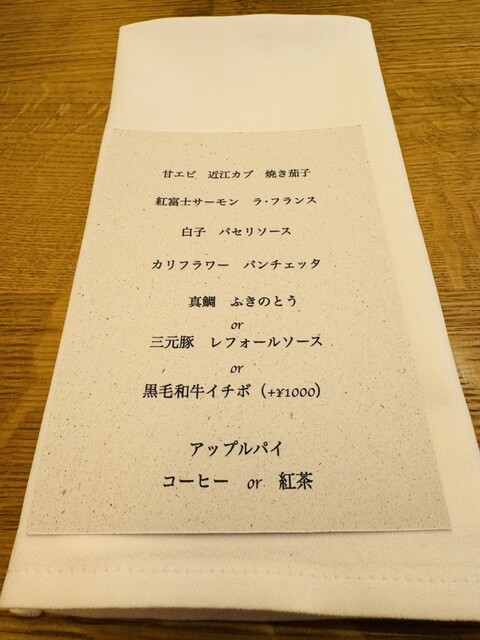 甘エビ　近江カブ　焼き茄子
紅富士サーモン　ラ・フランス
白子　パセリソース
カリフラワー　パンチェッタ
真鯛　ふきのとう
or
三元豚　レフォールソース
or
黒毛和牛イチボ（+¥1000）
アップルパイ
コーヒー　or　紅茶